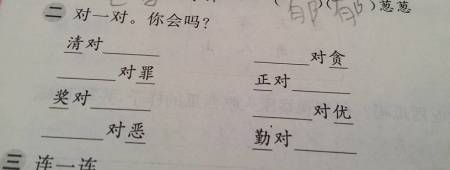 (郁郁)葱葱
二 对一对。你会吗?
清对______ ______对贪
______对罪 正对______
奖对______ ______对优
______对恶 勤对______
三 连一连